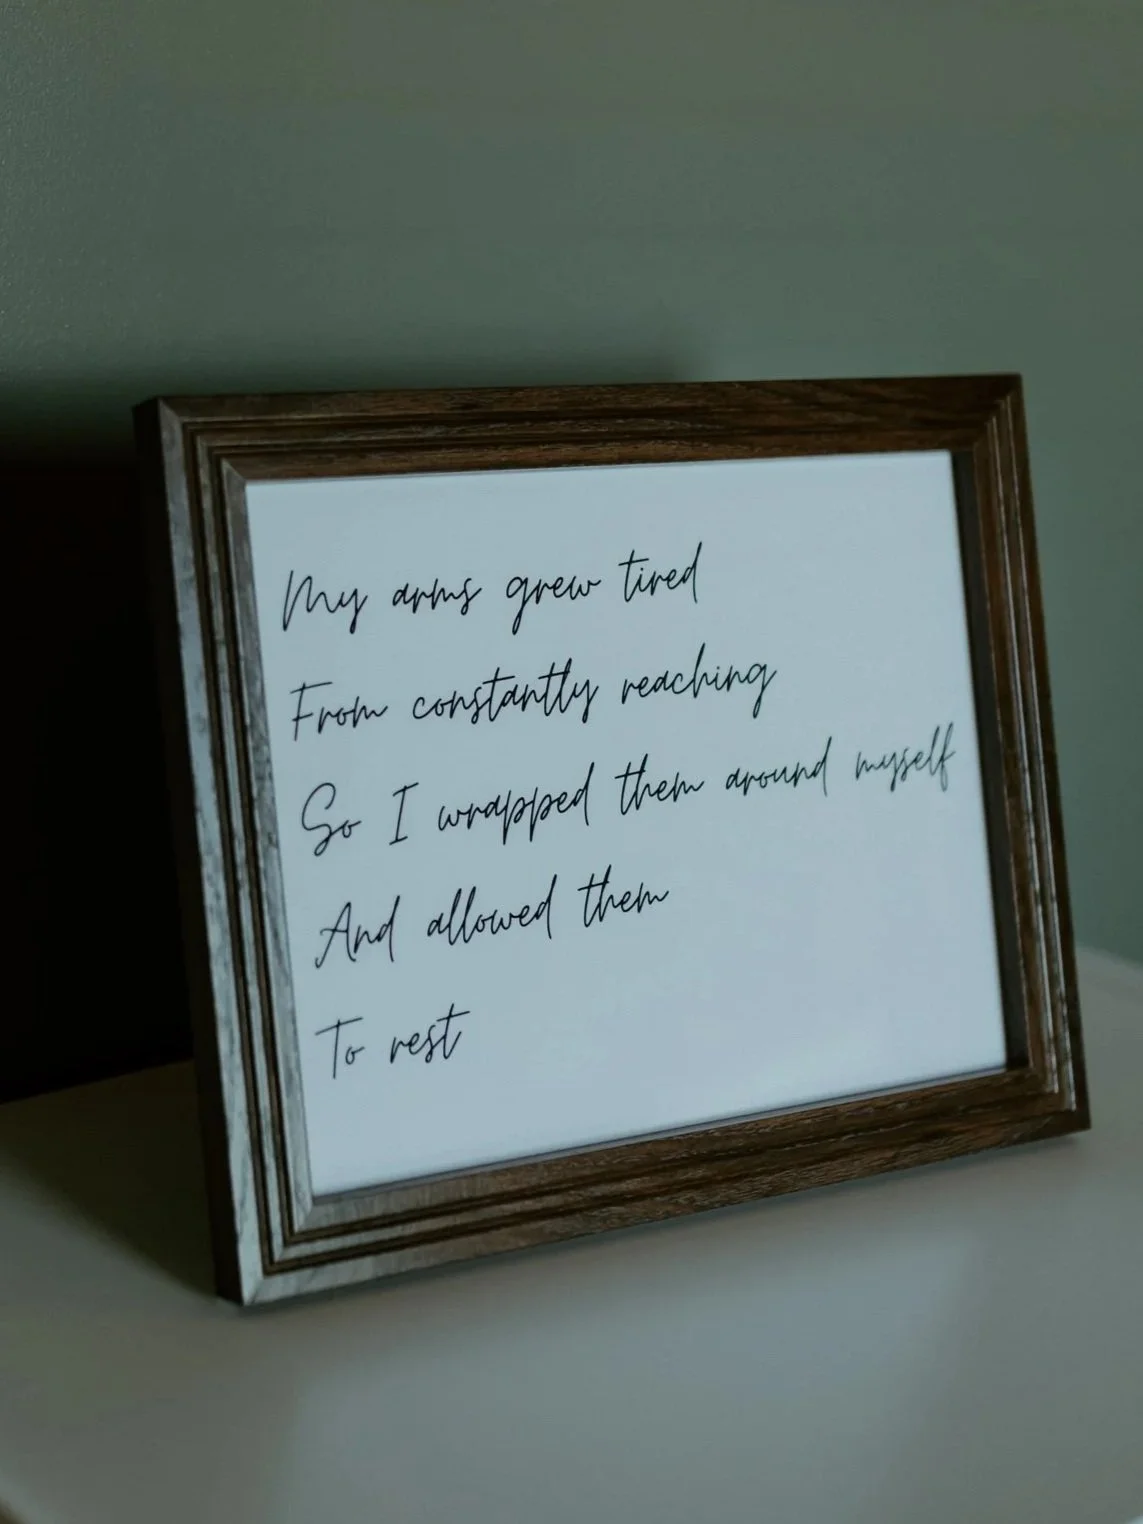 My arms grew tired
From constantly reaching
So I wrapped them around myself
And allowed them
To rest